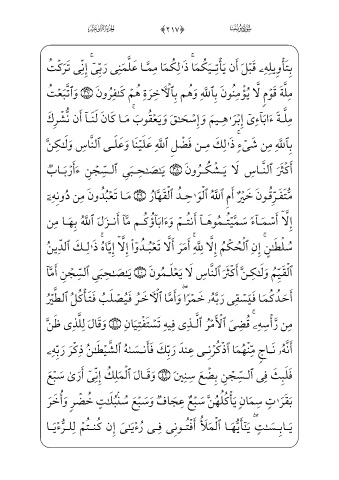 ﴿٢١٧﴾
بِتَأْوِيلِهِۦ قَبْلَ أَن يَأْتِيَكُمَا ۚ ذَٰلِكُمَا مِمَّا عَلَّمَنِى رَبِّىٓ ۚ إِنِّى تَرَكْتُ
مِلَّةَ قَوْمٍ لَّا يُؤْمِنُونَ بِٱللَّهِ وَهُم بِٱلْـَٔاخِرَةِ هُمْ كَـٰفِرُونَ ۝ وَٱتَّبَعْتُ
مِلَّةَ ءَابَآءِىٓ إِبْرَٰهِيمَ وَإِسْحَـٰقَ وَيَعْقُوبَ ۚ مَا كَانَ لَنَآ أَن نُّشْرِكَ
بِٱللَّهِ مِن شَىْءٍ ۚ ذَٰلِكَ مِن فَضْلِ ٱللَّهِ عَلَيْنَا وَعَلَى ٱلنَّاسِ وَلَـٰكِنَّ
أَكْثَرَ ٱلنَّاسِ لَا يَشْكُرُونَ ۝ يَـٰصَـٰحِبَىِ ٱلسِّجْنِ ءَأَرْبَابٌ
مُّتَفَرِّقُونَ خَيْرٌ أَمِ ٱللَّهُ ٱلْوَٰحِدُ ٱلْقَهَّارُ ۝ مَا تَعْبُدُونَ مِن دُونِهِۦٓ
إِلَّآ أَسْمَآءً سَمَّيْتُمُوهَآ أَنتُمْ وَءَابَآؤُكُم مَّآ أَنزَلَ ٱللَّهُ بِهَا مِن
سُلْطَـٰنٍ ۚ إِنِ ٱلْحُكْمُ إِلَّا لِلَّهِ ۚ أَمَرَ أَلَّا تَعْبُدُوٓا۟ إِلَّآ إِيَّاهُ ۚ ذَٰلِكَ ٱلدِّينُ
ٱلْقَيِّمُ وَلَـٰكِنَّ أَكْثَرَ ٱلنَّاسِ لَا يَعْلَمُونَ ۝ يَـٰصَـٰحِبَىِ ٱلسِّجْنِ أَمَّآ
أَحَدُكُمَا فَيَسْقِى رَبَّهُۥ خَمْرًا ۖ وَأَمَّا ٱلْـَٔاخَرُ فَيُصْلَبُ فَتَأْكُلُ ٱلطَّيْرُ
مِن رَّأْسِهِۦ ۚ قُضِىَ ٱلْأَمْرُ ٱلَّذِى فِيهِ تَسْتَفْتِيَانِ ۝ وَقَالَ لِلَّذِى ظَنَّ
أَنَّهُۥ نَاجٍ مِّنْهُمَا ٱذْكُرْنِى عِندَ رَبِّكَ فَأَنسَىٰهُ ٱلشَّيْطَـٰنُ ذِكْرَ رَبِّهِۦ
فَلَبِثَ فِى ٱلسِّجْنِ بِضْعَ سِنِينَ ۝ وَقَالَ ٱلْمَلِكُ إِنِّىٓ أَرَىٰ سَبْعَ
بَقَرَٰتٍ سِمَانٍ يَأْكُلُهُنَّ سَبْعٌ عِجَافٌ وَسَبْعَ سُنۢبُلَـٰتٍ خُضْرٍ وَأُخَرَ
يَابِسَـٰتٍ ۖ يَـٰٓأَيُّهَا ٱلْمَلَأُ أَفْتُونِى فِى رُءْيَـٰىَ إِن كُنتُمْ لِلرُّءْيَا